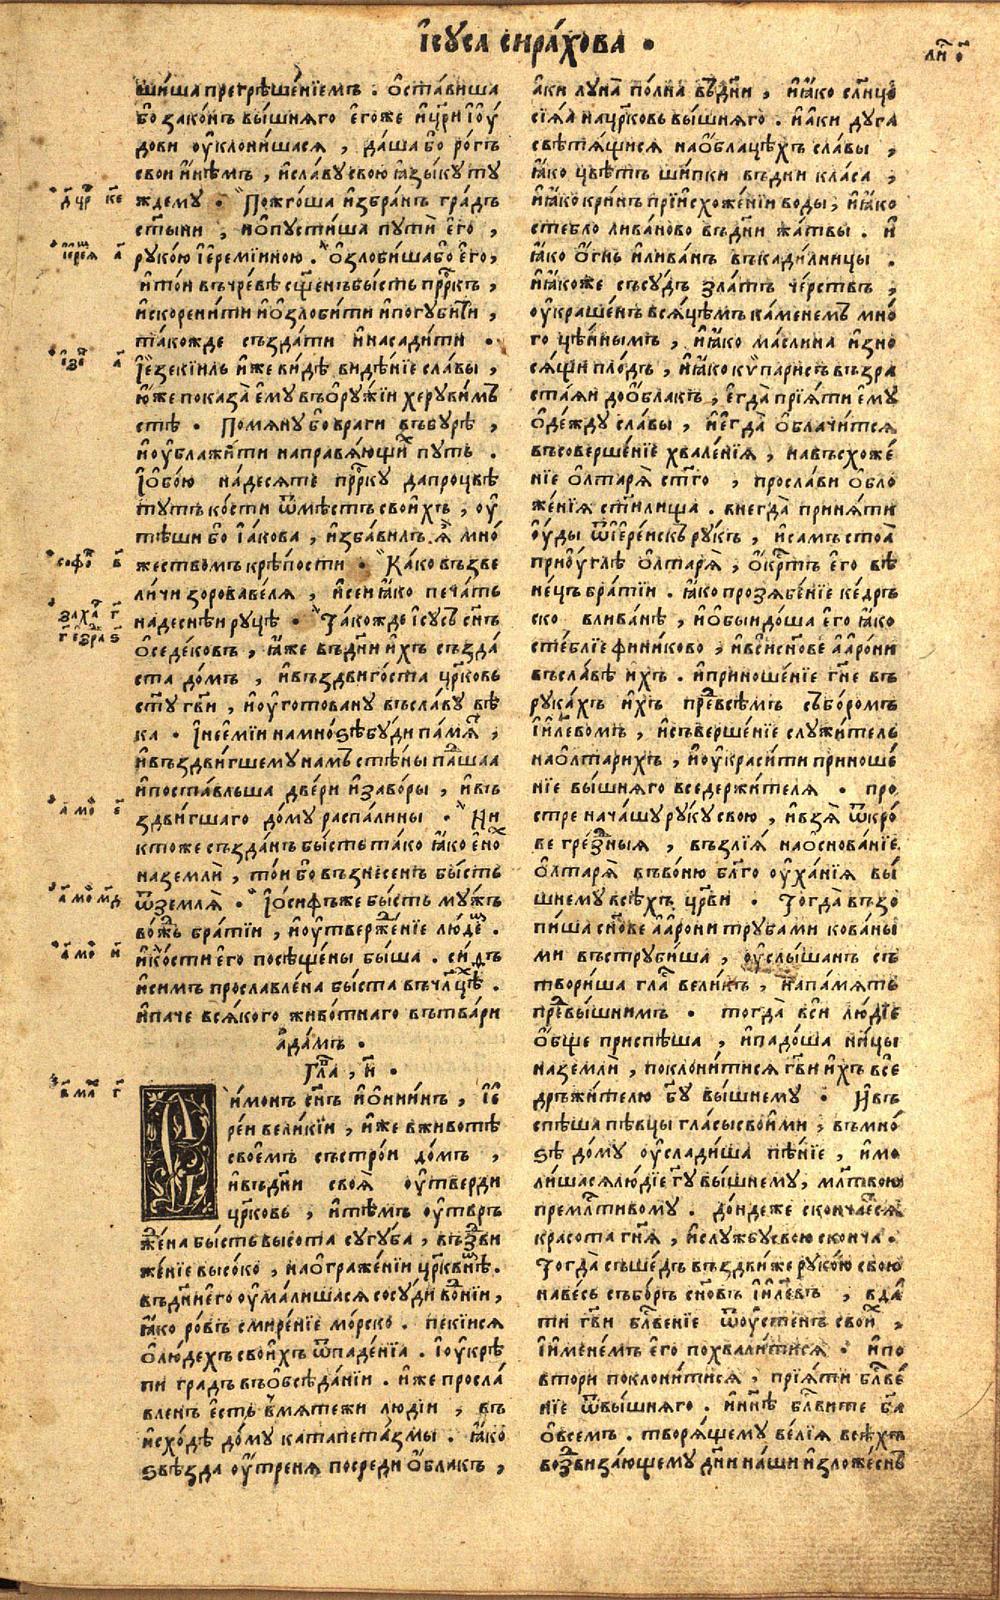 І҆исуса сира́хова •
ли́ст о҃
ши́ша прегрѣше́нїемъ . ѡ҆ста́виша
бо зако́нъ вы́шняго є҆го́же и҆ цр҃и і҆ю́
дови ѹ҆клони́шася , да́ша бо ро́гъ
свои и҆нѣмъ , и҆ славу свою ꙗ҆зы́ку ту
ждему • Пожго́ша и҆збра́нъ гра́дъ
ст҃ыни , и҆ ѡ҆пустиша пути̑ є҆го̀ ,
руко́ю і҆ереми́иною . Ѡ҆зло́биша бо є҆го̀,
и҆ то́и въ чре́вѣ сщ҃е́нъ бы́сть прⷪ҇ркъ ,
и҆скорени́ти и҆ ѡ҆зло́бити и҆ погуби́ти ,
та́кожде създа́ти и҆ насади́ти •
І҆езекі́иль и҆́же ви́дѣ видѣ́нїе сла́вы ,
ю҆́же показа̀ є҆му въ ѻ҆ру́жїи херуви́мъ
стѣ • Помяну́ бо враги въ бу́рѣ ,
и҆ ѹ҆блажи́ти направля́ющиⷯ путь .
І҆ ѻ҆бою на́десяте прⷪ҇рку да процвѣ
ту́тъ ко́сти ѿ мѣстъ свои́хъ , ѹ҆
тѣши́ бо і҆а́кова , и҆зба́вилъ ѧ҆̀ мно́
жествомъ крѣ́пости • Ка́ко възве
ли́чи зорова́веля , и҆ се́и ꙗ҆́ко печа́ть
на десне́и руцѣ̀ • Та́кожде і҆су́съ сн҃ъ
ѻ҆седе́ковъ , ꙗ҆́же въ дн҃и и҆́хъ създа́
ста до́мъ , и҆ въздвиго́ста цр҃ковь
ст҃у гв҃и , и҆ ѹ҆гото́вану въ сла́ву вѣ
ка • І҆ неемі́и на мно́ѕѣ бу́ди па́мяⷮ ,
и҆ въздви́гшему намъ стѣ́ны па́дшаа
и҆ поста́вльша две́ри и҆ заво́ры , и҆ въ
здви́гшаго до́му распа́лины • Ни
кто́же създа́нъ бы́сть та́ко ꙗ҆́ко є҆но́ⷯ
на земли̑ , то́и бо възнесе́нъ бы́сть
ѿ земля̀ • І҆ѻ́сифъ же бы́сть му́жъ
во́ждь бра́тїи , и҆ ѹ҆твержде́нїе люде́ⷨ .
и҆ ко́сти є҆го посѣще́ны бы́ша . си́дъ
и҆ симъ просла́влена бы́ста въ члцⷯѣ .
и҆ па́че вся́кого живо́тнаго въ тва́ри
а҆да́мъ .
Гла́в , н҃ •
Си́монъ сн҃ъ и҆ѻ́ниинъ , і҆е
ре́и вели́кїи , и҆́же в животѣ̀
свое́мъ състро́и до́мъ ,
и҆ въ дн҃и своя̑ ѹ҆тверди
цр҃ковь , и҆ тѣ́мъ ѹ҆твръ
жде́на бы́сть высота сугу́ба , въздви
же́нїе высо́ко , на ѻ҆гражде́нїи црⷦ҇внѣⷨ.
въ дн҃и є҆го ѹ҆ма́лишася сосу́ди во́днїи,
ꙗ҆́ко ро́въ смире́нїе мо́рско . пекі́ися
ѻ҆ лю́дехъ свои́хъ ѿ паде́нїа . І҆ ѹ҆крѣ
пи гра́дъ въ ѻ҆бсѣда́нїи . и҆́же просла́
вленъ є҆́сть в мяте́жи лю́дїи , въ
и҆схо́дѣ до́му катапета́змы . ꙗ҆́ко
ѕвѣзда ѹ҆́треня посреди ѻ҆́блакъ ,
а҆ки луна̀ по́лна въ дн҃и , и҆ ꙗ҆́ко сл҃нцо
сїя́я на цр҃ковь вы́шняго . и҆ а҆ки дуга
свѣтя́щися на ѻ҆́блацѣхъ сла́вы ,
ꙗ҆́ко цвѣ́тъ ши́пки въ дни кла́са ,
и҆ ꙗ҆́ко кри́нъ при и҆схожде́нїи воды̀, и҆ ꙗ҆́ко
стебло лива́ново въ дн҃и жа́твы . и҆
ꙗ҆́ко ѻ҆гнь и҆ лива́нъ въ кади́лницы .
и҆ ꙗ҆́коже съсу́дъ зла́тъ че́рствъ ,
ѹ҆краше́нъ вся́цѣмъ ка́менемъ мно́
го цѣ́ннымъ , и҆ ꙗ҆́ко ма́слина и҆зно
ся́щи пло́дъ , и҆ ꙗ҆́ко кѵпари́съ възра
ста́яи до ѻ҆́блакъ , є҆гда̀ прїя́ти є҆му
ѻ҆де́жду сла́вы , и҆ є҆гда̀ ѻ҆блачи́тся
въ соверше́нїе хвале́нїя , на въсхожде́
нїе ѻ҆лтаря̀ ст҃го , просла́ви ѻ҆бло
же́нїя ст҃и́лища . внегда̀ приня́ти
ѹ҆́ды ѿ і҆ере́искъ ру́къ , и҆ са́мъ стоя̀
при ѹ҆глѣ̀ ѻ҆лтаря̀ , ѻ҆́крⷭ҇тъ є҆го вѣ
не́цъ бра́тїи . ꙗ҆́ко прозябе́нїе ке́дръ
ско в лива́нѣ , и҆ ѻ҆быидо́ша є҆го ꙗ҆́ко
сте́блїе фини́ково , и҆ вси̑ сн҃ове а҆аро́ни
въ сла́вѣ и҆́хъ . и҆ приноше́нїе гн҃е въ
рука́хъ и҆́хъ преⷣ всѣ́мъ събо́ромъ
і҆и҃левомъ , и҆ съверше́нїе служи́тель
на ѻ҆лтарихъ , и҆ ѹ҆краси́ти приноше́
нїе вы́шняго вседержи́теля • про
стре на чашу ру́ку свою , и҆ взя̀ ѿ кро́
ве гре́здныя , възлїя̀ на ѻ҆снова́нїе
ѻ҆лтаря̀ въ воню бл҃го ѹ҆ха́нїя вы́
шнему всѣ́хъ цр҃ви • Тогда̀ възо
пиша сн҃ове а҆аро́ни труба́ми кова́ны
ми въстру́биша , ѹ҆слы́шанъ съ
твори́ша гла́съ вели́къ , на па́мять
преⷣ вы́шнимъ • тогда̀ вси лю́дїе
ѻ҆́бще приспѣ́ша , и҆ падо́ша ни́цы
на земли̑ , поклони́тися гв҃и и҆́хъ все
дръжи́телю бг҃у вы́шнему • И҆ въ
спѣ́ша пѣвцы гла́сы свои́ми , въ мно́
ѕѣ до́му ѹ҆слади́ша пѣ́нїе , и҆ мо
ли́шася лю́дїе гд҇у вы́шнему, мл҃твою
премлⷭ҇тивому . до́ндеже сконча́еся
красота гн҃я , и҆ слу́жбу свою сконча̀ .
Тогда̀ съше́дъ въздви́же руко́ю свою
на ве́сь събо́ръ сн҃овъ і҆и҃левъ , вда́
ти гв҃и блⷭ҇ве́нїе ѿ ѹ҆сте́нъ свои́ⷯ ,
і҆ и҆́менемъ є҆го похвали́тися . и҆ по
втори поклони́тися , прїя́ти блⷭ҇ве́
нїе ѿ вы́шняго . и҆ ны́нѣ блⷭ҇ви́те бг҃а
ѻ҆ все́мъ . творя́щему ве́лїя всѣ́хъ
возвиза́ющему дн҃и на́ши и҆з ложе́снъ